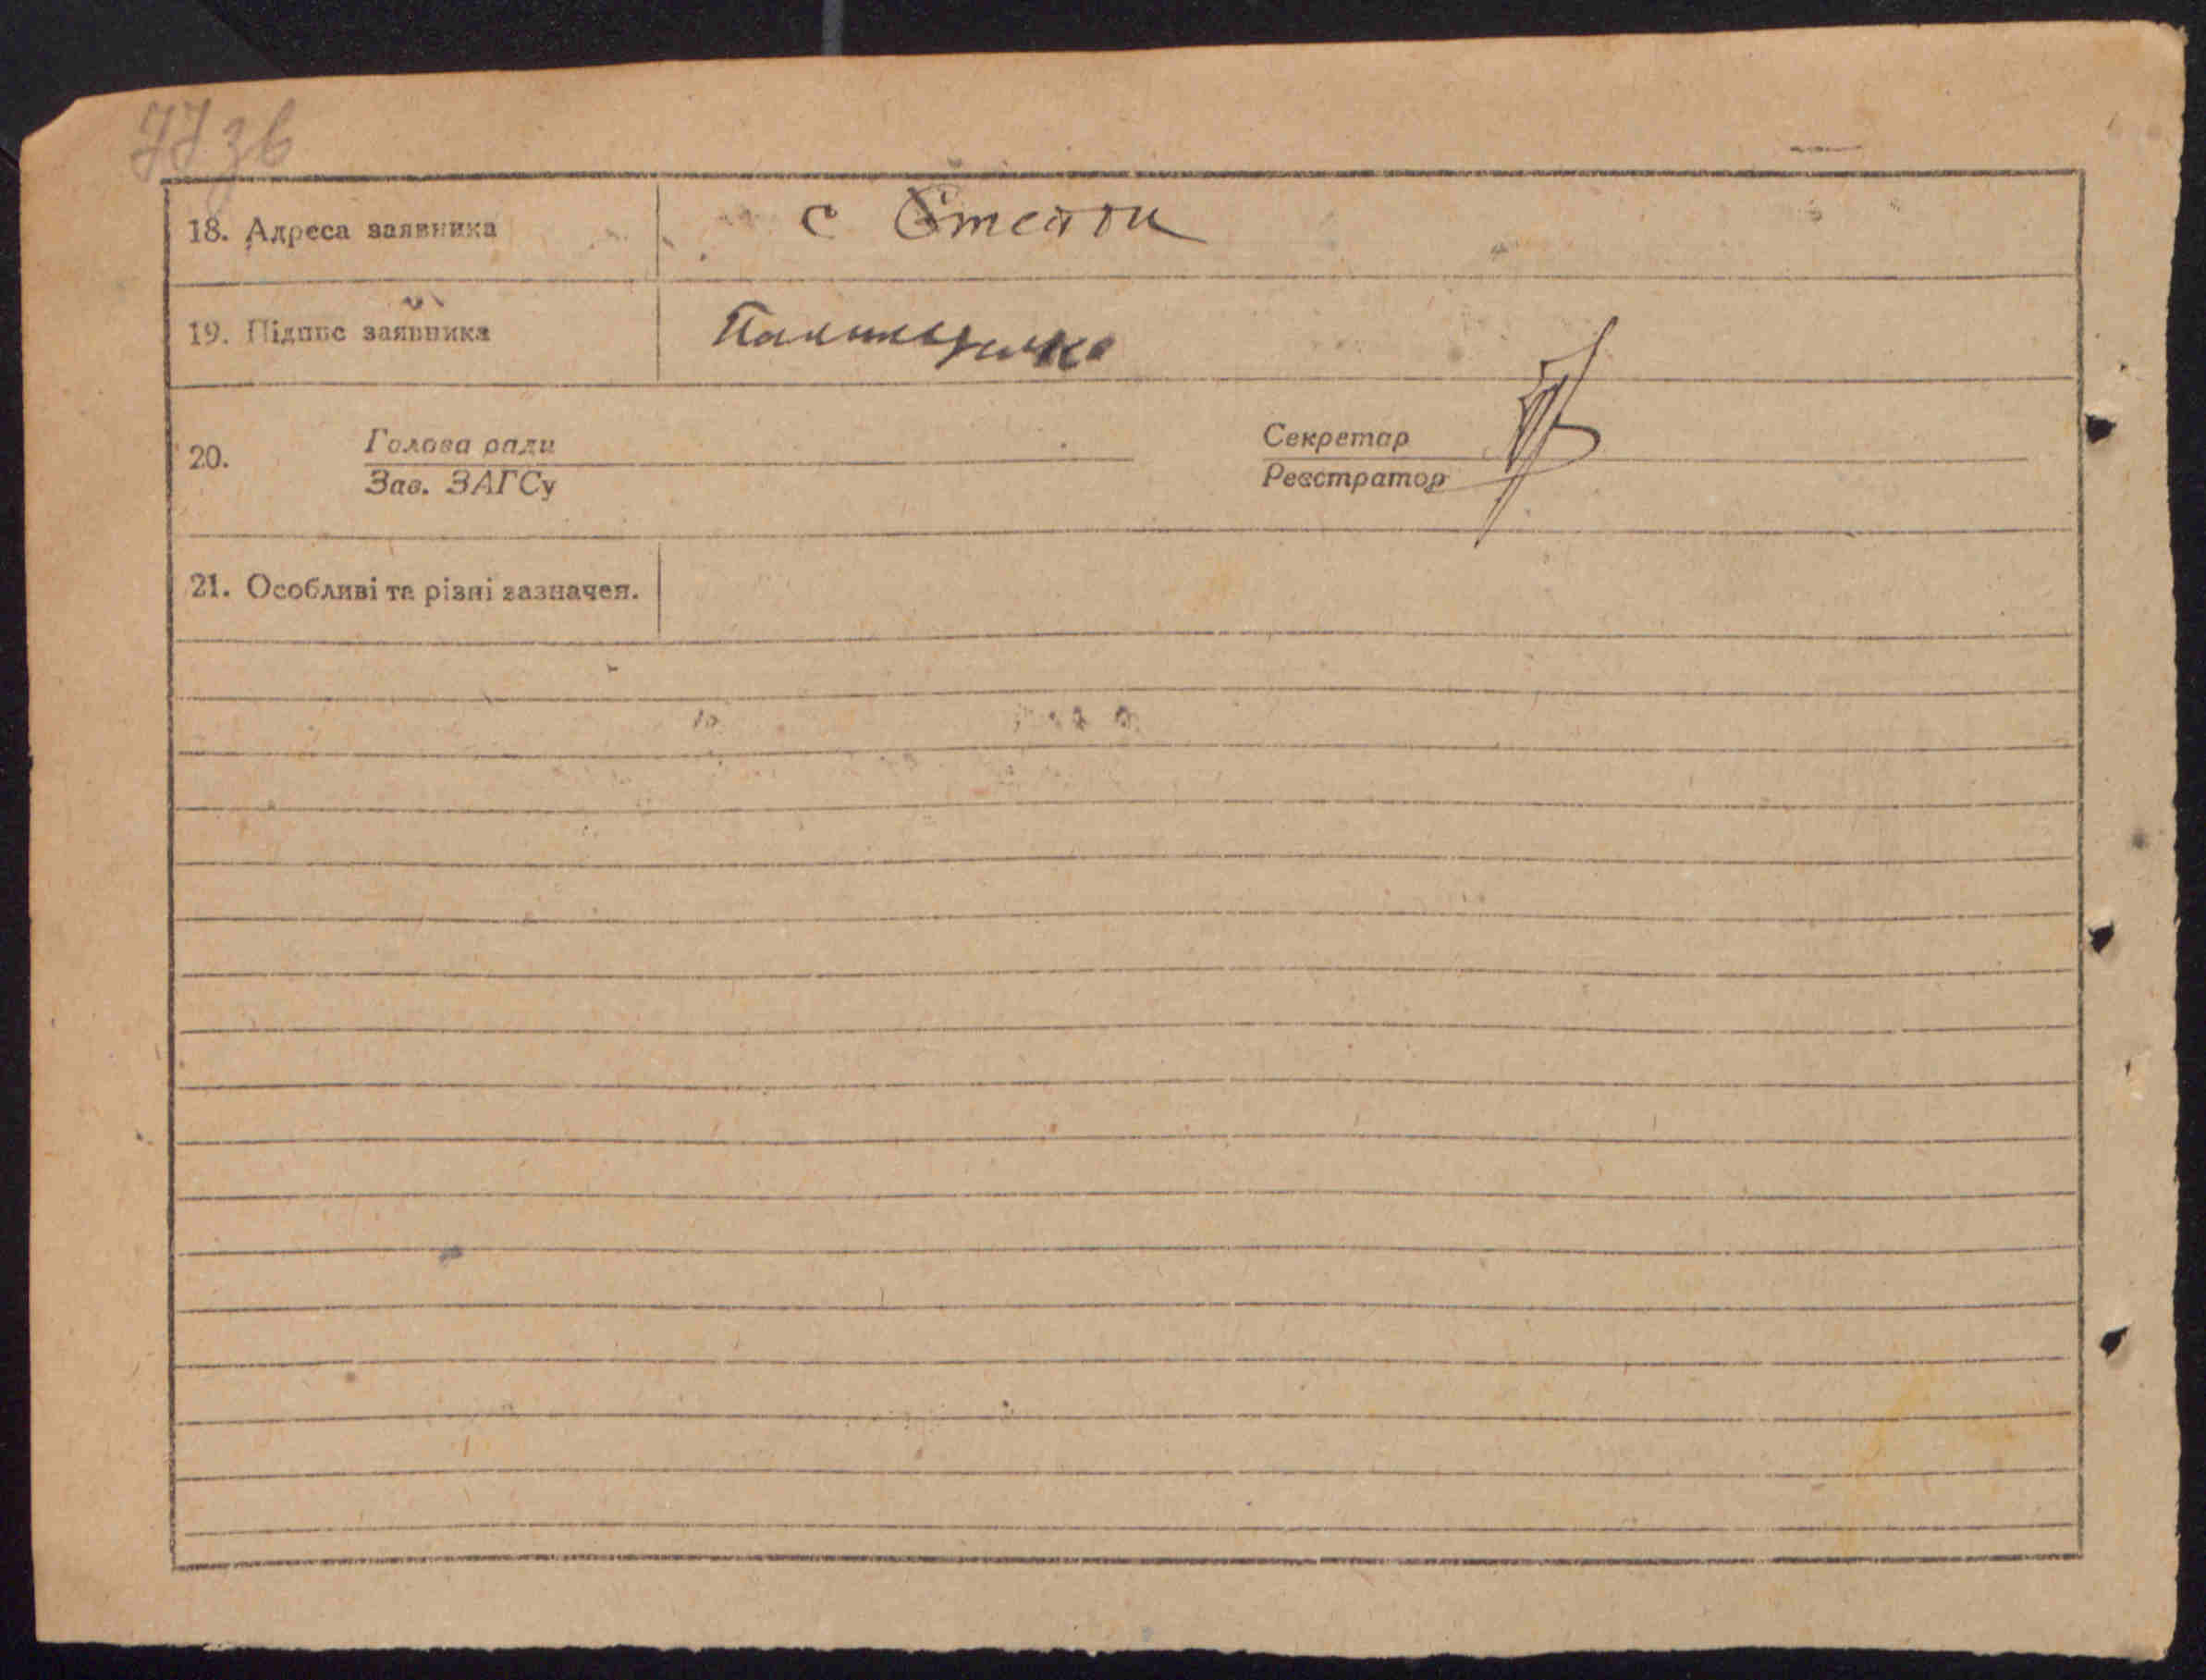 77зв
18. Адреса заявника с Степок
19. Підпис заявника
20. Голова ради Секретар
Зав. ЗАГСу Реєстратор
21. Особливі та різні зазначен.